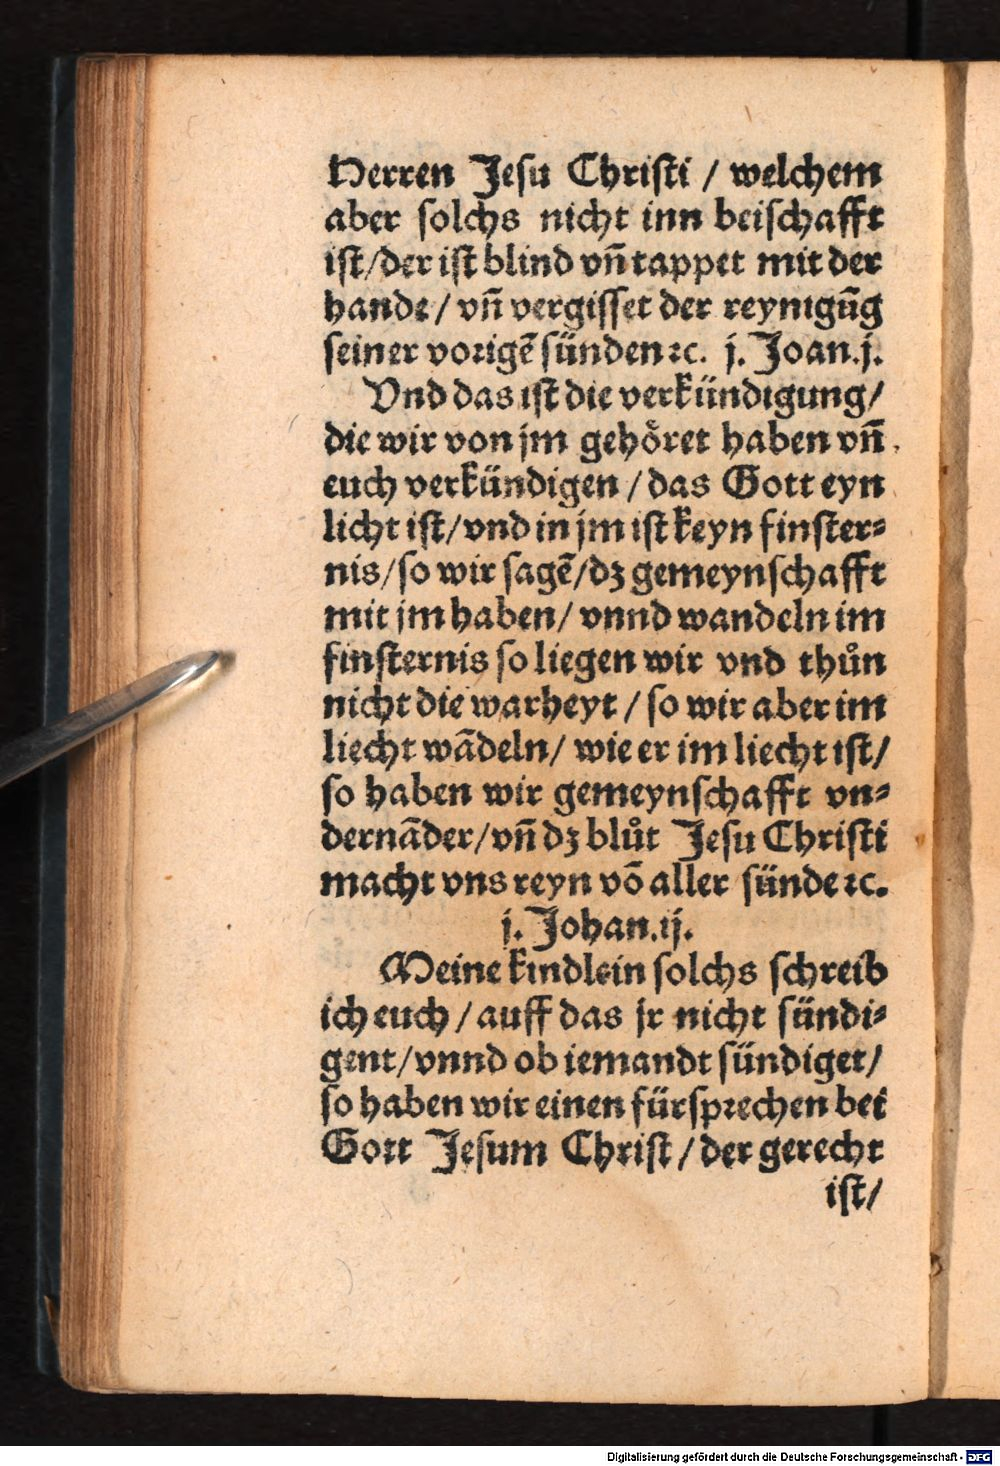 Herren Jesu Christi / welchem
aber solchs nicht inn beischafft
ist/der ist blind vñ tappet mit der
hande/ vñ vergisset der reynigũg
seiner vorigẽ sünden ꝛc. j. Joan.j.
Vnd das ist die verkündigung/
die wir von jm gehöret haben vñ
euch verkündigen / das Gott eyn
licht ist/vnd in jm ist keyn finster⸗
nis/so wir sagẽ/dz gemeynschafft
mit jm haben/ vnnd wandeln im
finsternis so liegen wir vnd thůn
nicht die warheyt / so wir aber im
liecht wãdeln/ wie er im liecht ist/
so haben wir gemeynschafft vn⸗
dernãder/vñ dz blůt Jesu Christi
macht vns reyn võ aller sünde ꝛc.
j. Johan.ij.
Meine kindlein solchs schreib
ich euch / auff das jr nicht sündi⸗
gent/vnnd ob iemandt sündiget/
so haben wir einen fürsprechen bei
Gott Jesum Christ / der gerecht
ist/
Digitalisierung gefördert durch die Deutsche Forschungsgemeinschaft - DFG